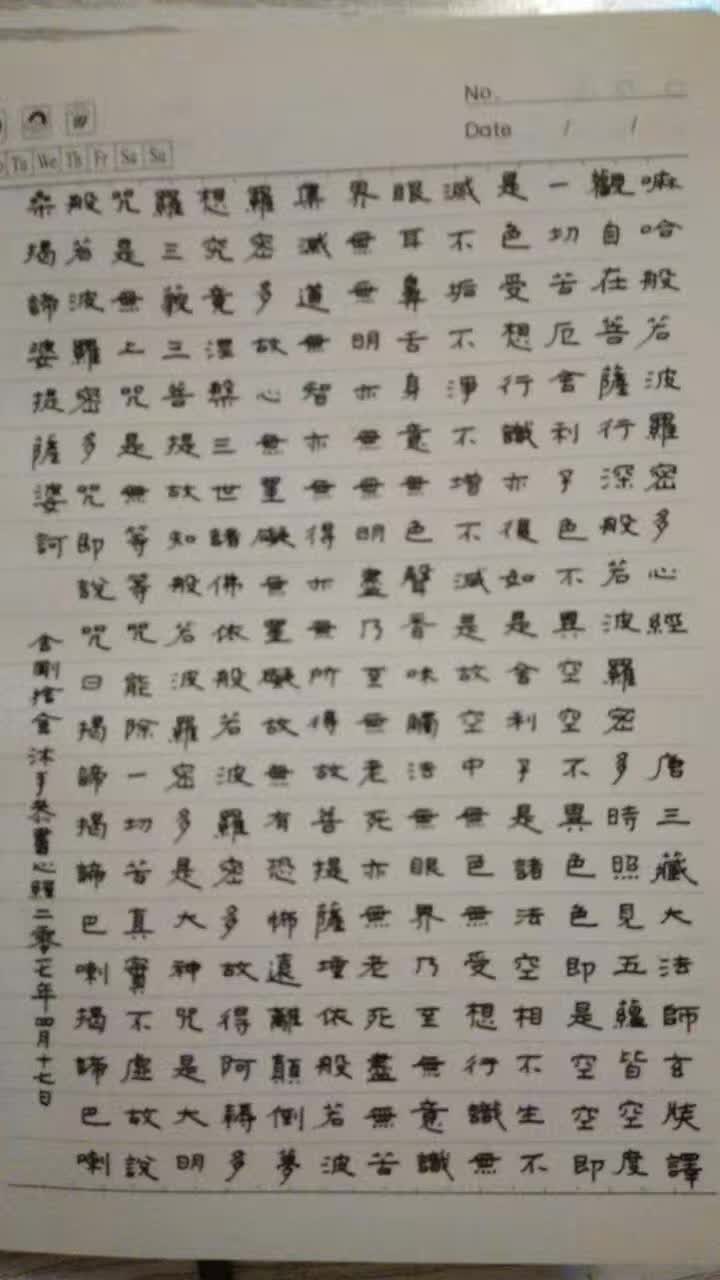 No.
Date / /
Tu We Th Fr Sa Su
嘛哈般若波羅密多心經 唐三藏大法師玄奘譯
觀自在菩薩行深般若波羅密多時照見五蘊皆空度
一切苦厄舍利子色不異空空不異色色即是空空即
是色受想行識亦復如是舍利子是諸法空相不生不
滅不垢不淨不增不減是故空中無色無受想行識無
眼耳鼻舌身意無色聲香味觸法無眼界乃至無意識
界無無明亦無無明盡乃至無老死亦無老死盡無苦
集滅道無智亦無得亦無所得故菩提薩埵依般若波
羅密多故心無罣礙無罣礙故無有恐怖遠離顛倒夢
想究竟涅槃三世諸佛依般若波羅密多故得阿耨多
羅三藐三菩提故知般若波羅密多是大神咒是大明
咒是無上咒是無等等咒能除一切苦真實不虛故說
般若波羅密多咒即說咒曰揭諦揭諦巴喇揭諦巴喇
桑揭諦婆提薩婆訶
金剛捨舍沐手恭書心經二零一七年四月十七日